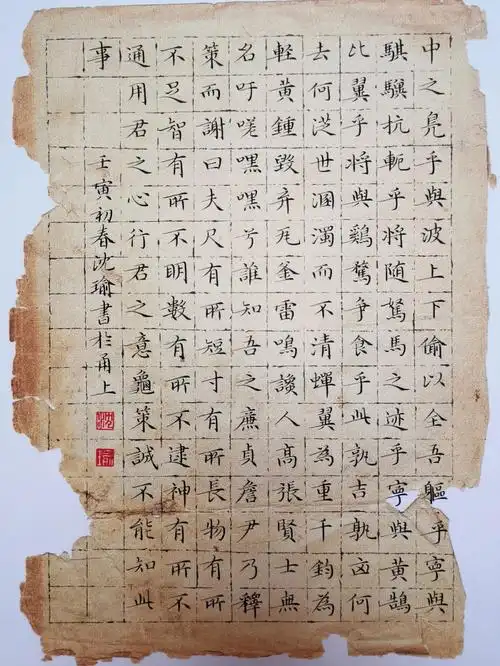 中之鳧乎與波上下偷以全吾軀乎寧與
騏驥抗軛乎將隨駑馬之迹乎寧與黃鵠
比翼乎將與鷄鶩争食乎此孰吉孰凶何
去何從世溷濁而不清蟬翼為重千鈞為
輕黃鍾毀弃瓦釜雷鳴讒人高張賢士無
名吁嗟嘿嘿兮誰知吾之廉貞詹尹乃釋
策而謝曰夫尺有所短寸有所長物有所
不足智有所不明數有所不逮神有所不
通用君之心行君之意龜策誠不能知此
事
壬寅初春沈瑜書於甬上